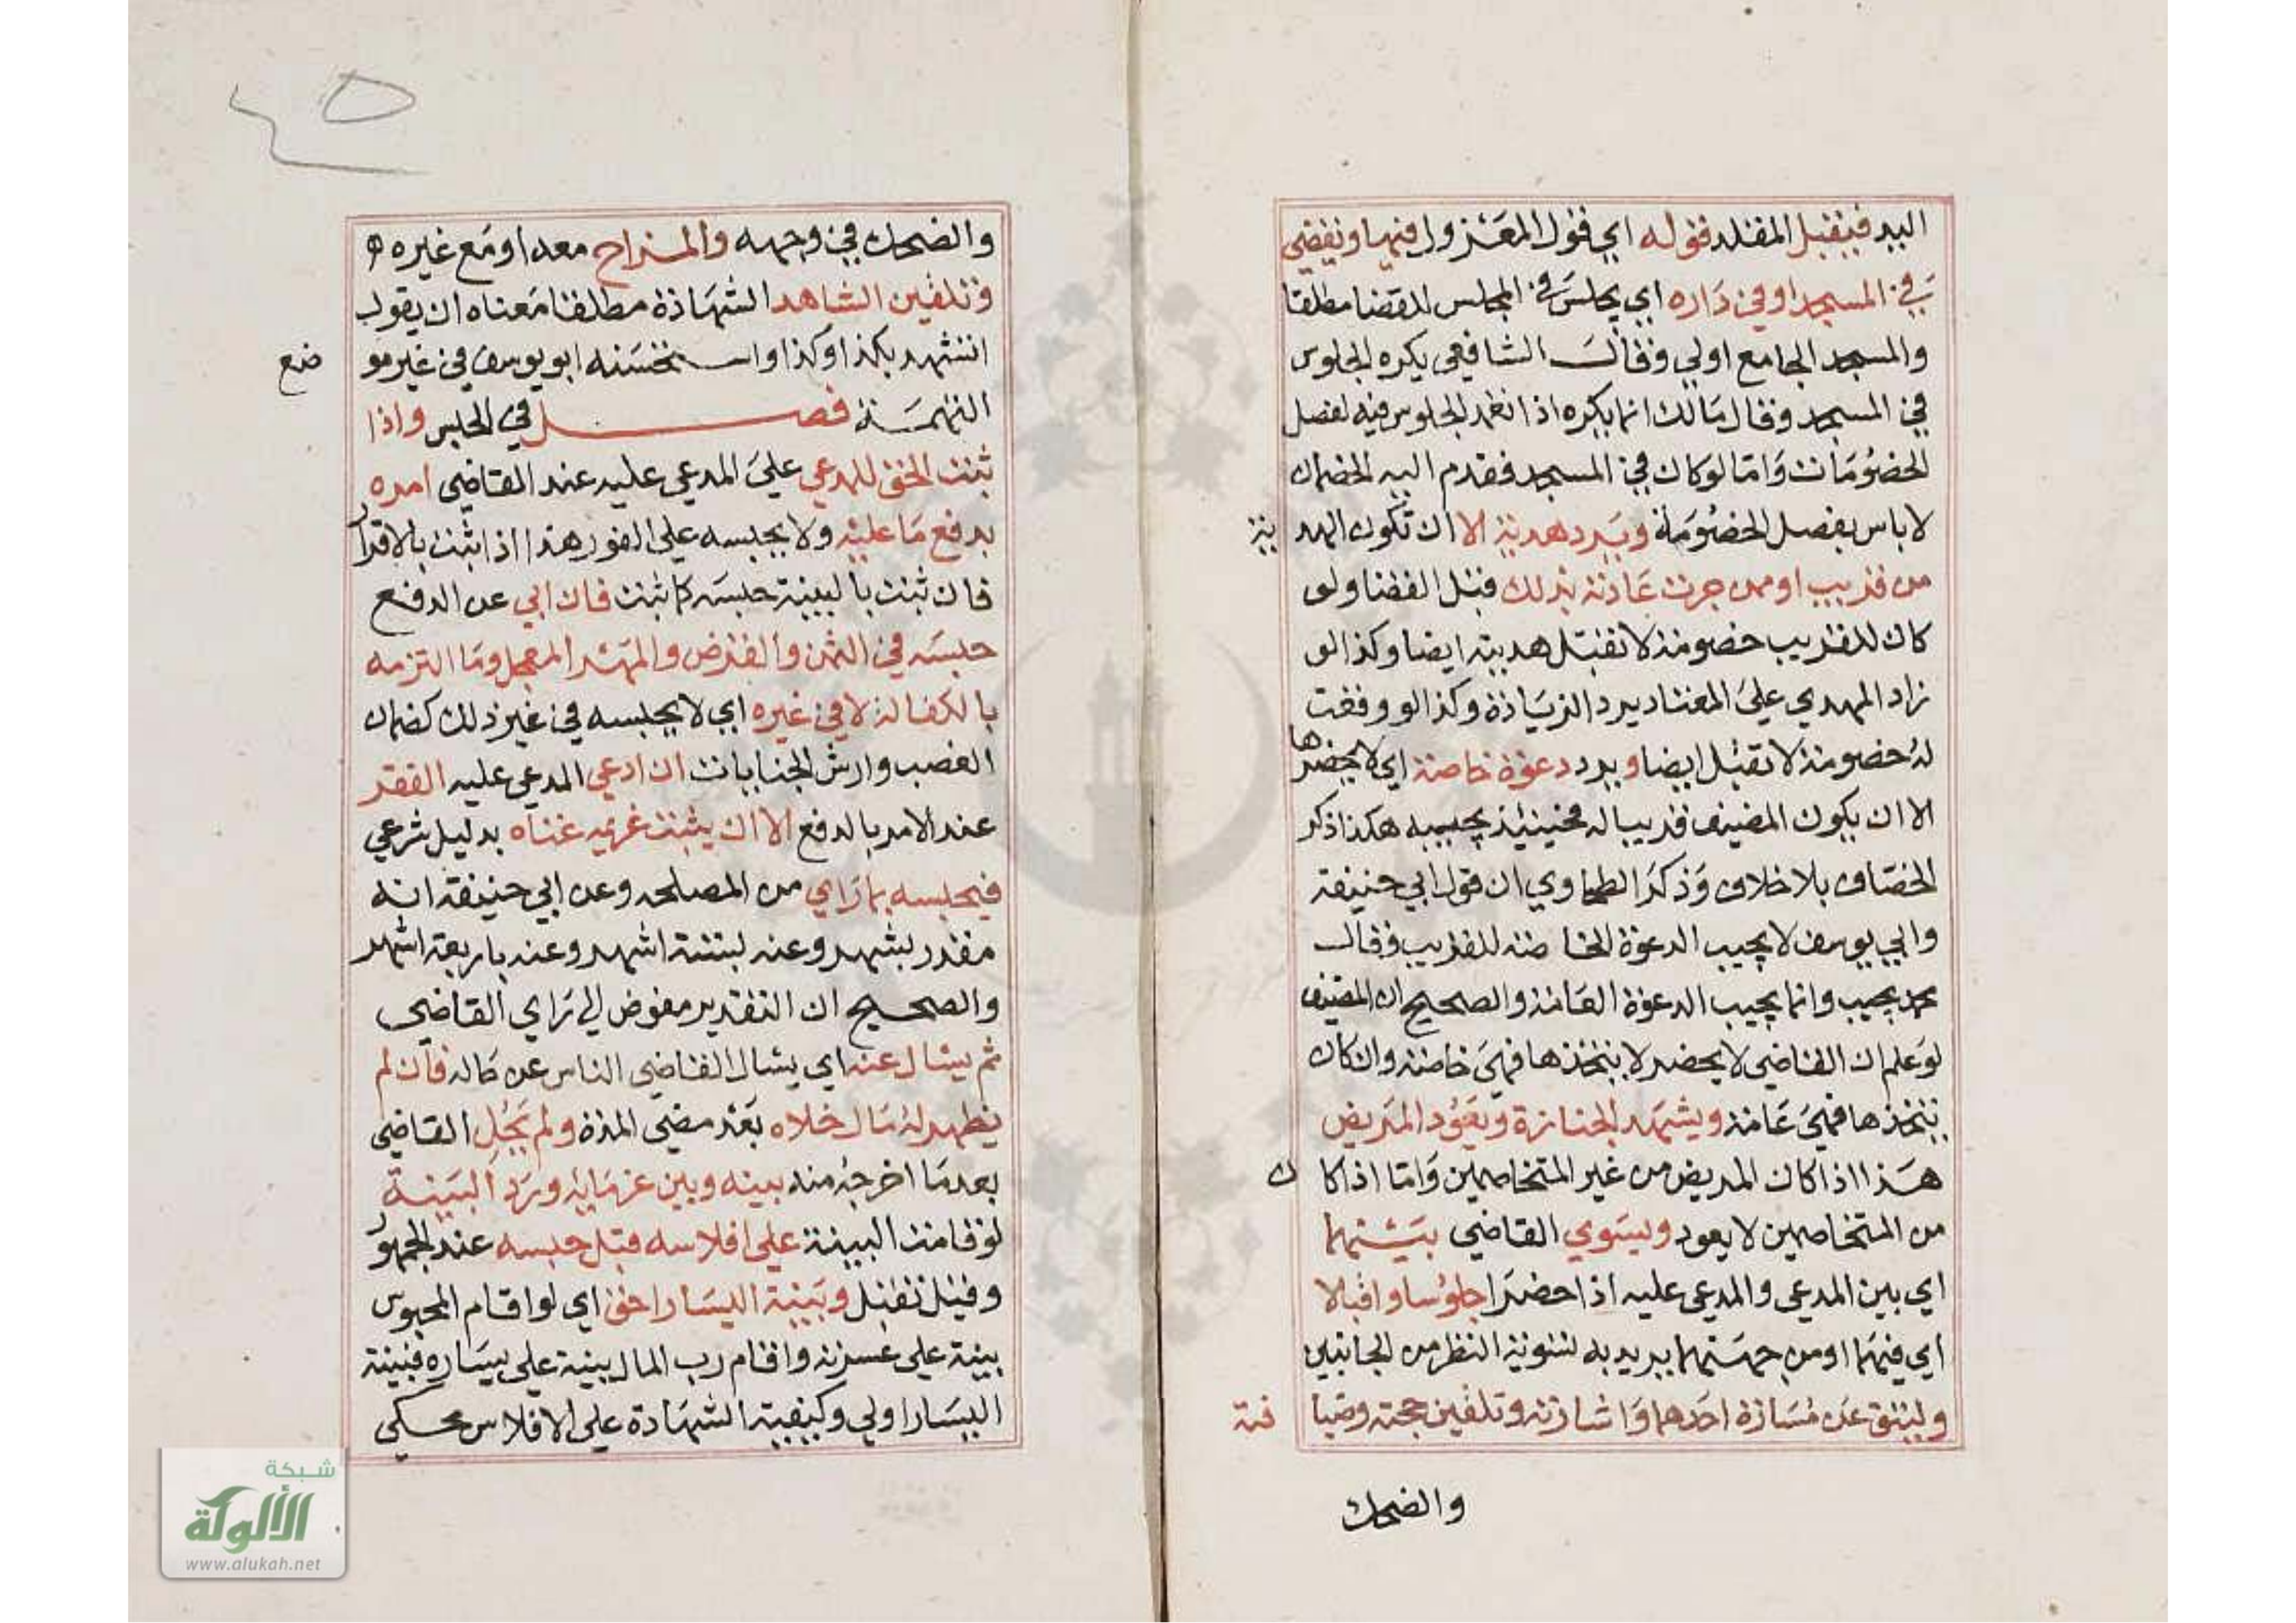 اليه فيقبل المقلد قوله اي قول المعزول فيها ويقضي
في المسجد او في داره اي يجلس في المجلس للقضا مطلقا
والمسجد الجامع اولي وقال الشافعي يكره الجلوس
في المسجد وقال مالك انما يكره اذا تعمد الجلوس فيه لفصل
الخصومات واما لو كان في المسجد فقدم اليه الخصمان
لا باس بفصل الخصومة ويرد هدية الا ان تكون الهد ية
من قريب او ممن جرت عادته بذلك قبل القضا ولو
كان للقريب خصومة لا تقبل هديته ايضا وكذا لو
زاد المهدي علي المعتاد يرد الزيادة وكذا لو وقعت
له خصومة لا تقبل ايضا ويرد دعوة خاصة اي لا يحضرها
الا ان يكون المضيف قريبا له فحينئذ يجيبه هكذا ذكر
الخصاف بلا خلاف وذكر الطحاوي ان قول ابي حنيفة
وابي يوسف لا يجيب الدعوة الخا صة للقريب وقال
محمد يجيب وانما يجيب الدعوة العامة والصحيح ان المضيف
لو علم ان القاضي لا يحضر لا يتخذها فهي خاصة وان كان
يتخذها فهي عامة ويشهد الجنازة ويعود المريض
هذا اذا كان المريض من غير المتخاصمين واما اذا كا ن
من المتخاصمين لا يعود ويسوي القاضي بينهما
اي بين المدعي والمدعي عليه اذا حضرا جلوسا واقبالا
اي فيهما او من جهتهما يريد به تسوية النظر من الجانبين
وليتق عن مسارة احدهما واشارته وتلقين حجته وضيا فته
والضحك
والضحك في وجهه والمزاح معه او مع غيره
وتلقين الشاهد الشهادة مطلقا معناه ان يقول
اتشهد بكذا وكذا واستحسنه ابو يوسف في غير مو ضع
التهمة فصل في الحبس واذا
ثبت الحق للمدعي علي المدعي عليه عند القاضي امره
بدفع ما عليه ولا يحبسه علي الفور هذا اذا ثبت بالاقرار
فان ثبت بالبينة حبسه كما ثبت فان ابي عن الدفع
حبسه في الثمن والقرض والمهر المعجل وما التزمه
بالكفالة لا في غيره اي لا يحبسه في غير ذلك كضمان
الغصب وارش الجنايات ان ادعي المدعي عليه الفقر
عند الامر بالدفع الا ان يثبت غريمه غناه بدليل شرعي
فيحبسه بما راي من المصلحه وعن ابي حنيفة انه
مقدر بشهر وعنه بستة اشهر وعنه باربعة اشهر
والصحيح ان التقدير مفوض الي راي القاضي
ثم يسال عنه اي يسال القاضي الناس عن حاله فان لم
يظهر له مال خلاه بعد مضي المدة ولم يحل القاضي
بعد ما اخرجه منه بينه وبين غرمائه ورد البينة
لو قامت البينة علي افلاسه قبل حبسه عند الجمهور
وقيل تقبل وبينة اليسار احق اي لو اقام المحبوس
بينة علي عسرته واقام رب المال بينة علي يساره فبينة
اليسار اولي وكيفية الشهادة علي الافلاس محكي
شبكة
الألوكة
www.alukah.net